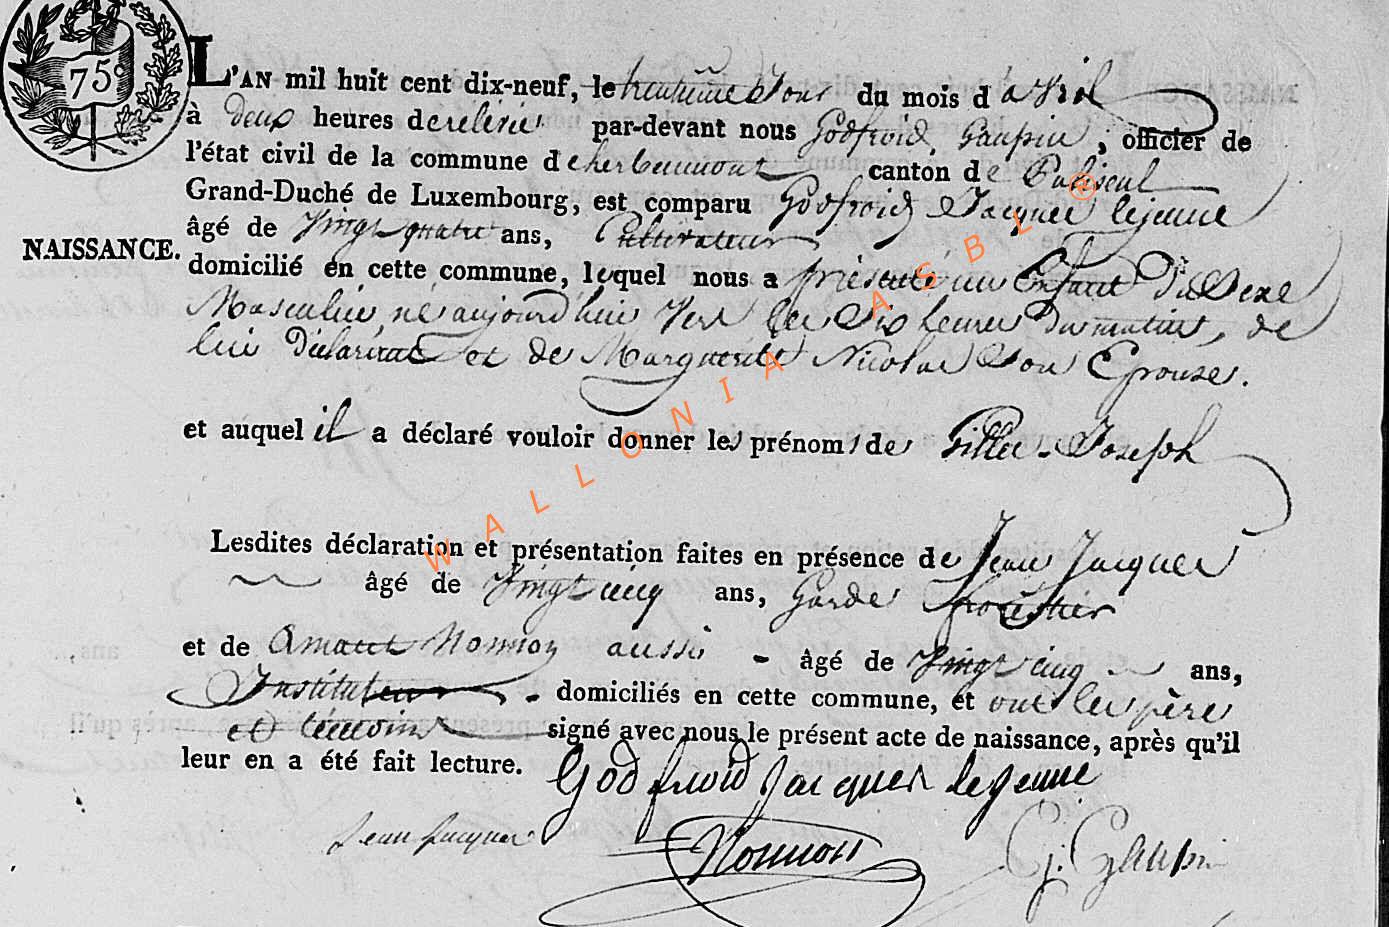 75c
L'AN mil huit cent dix-neuf, le huitieme Jour du mois d'avril
à deux heures de relevée par-devant nous Godfroid Gaupin, officier de
l'état civil de la commune d'herbeumont canton de Paliseul
Grand-Duché de Luxembourg, est comparu Godfroid Jacques lejeune
NAISSANCE.
âgé de Vingt quatre ans, Cultivateur
domicilié en cette commune, lequel nous a présenté un Enfant du Sexe
Masculin, né aujourd'hui Vers les Six heures du matin, de
lui déclarant et de Marguerite Nicolas Son Epouse.
et auquel il a déclaré vouloir donner les prénoms de Gilles-Joseph
Lesdites déclaration et présentation faites en présence de Jean Jacques
âgé de Vingt cinq ans, Garde forestier
et de Amant Nonnon aussi - âgé de Vingt cinq ans,
Instituteur - domiciliés en cette commune, et ont les père
et témoins signé avec nous le présent acte de naissance, après qu'il
leur en a été fait lecture. Godfroid Jacques lejeune
Jean Jacques Nonnon G. Gaupin
WALLONIA ASBL ®